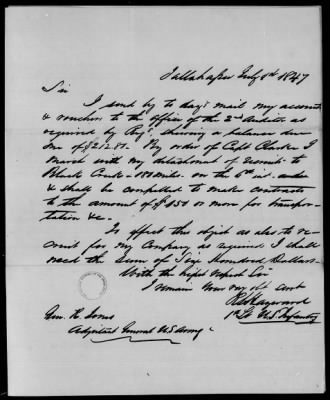 Tallahassee July 3rd 1847
Sir
I send by to day's mail my accounts
& vouchers to the office of the 2nd Auditor as
required by Regs. showing a balance due
me of $212.81. By order of Capt Clark I
march with my detachment of recruits to
Black Creek - 180 miles - on the 5th inst.
& shall be compelled to make contracts
to the amount of $150 or more for transpor-
tation &c.
To effect this object as also to re-
cruit for my Company as required I shall
need the Sum of Six Hundred Dollars
With the highest respect Sir
I remain Your my obt svnt
Hayward
1st Lt U.S. Infantry
Gen. R. Jones
Adjutant General U.S. Army